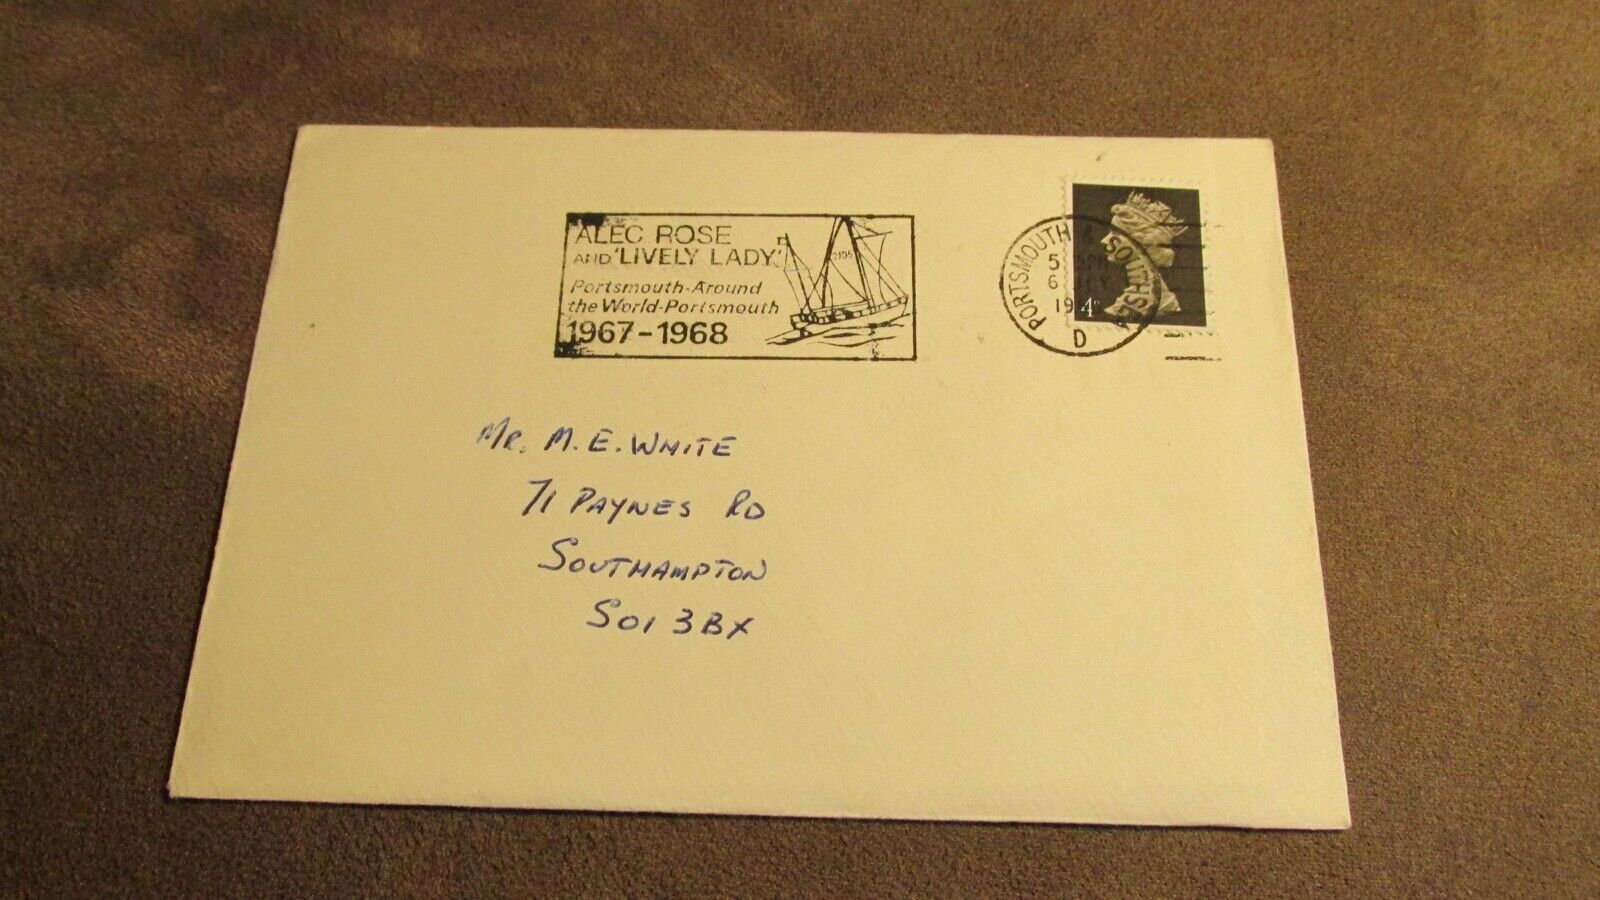 ALEC ROSE
AND 'LIVELY LADY'
Portsmouth-Around
the World-Portsmouth
1967-1968
2105
PORTSMOUTH & SOUTHSEA
5
6
19
D
4D
MR. M. E. WHITE
71 PAYNES RD
SOUTHAMPTON
SO1 3BX